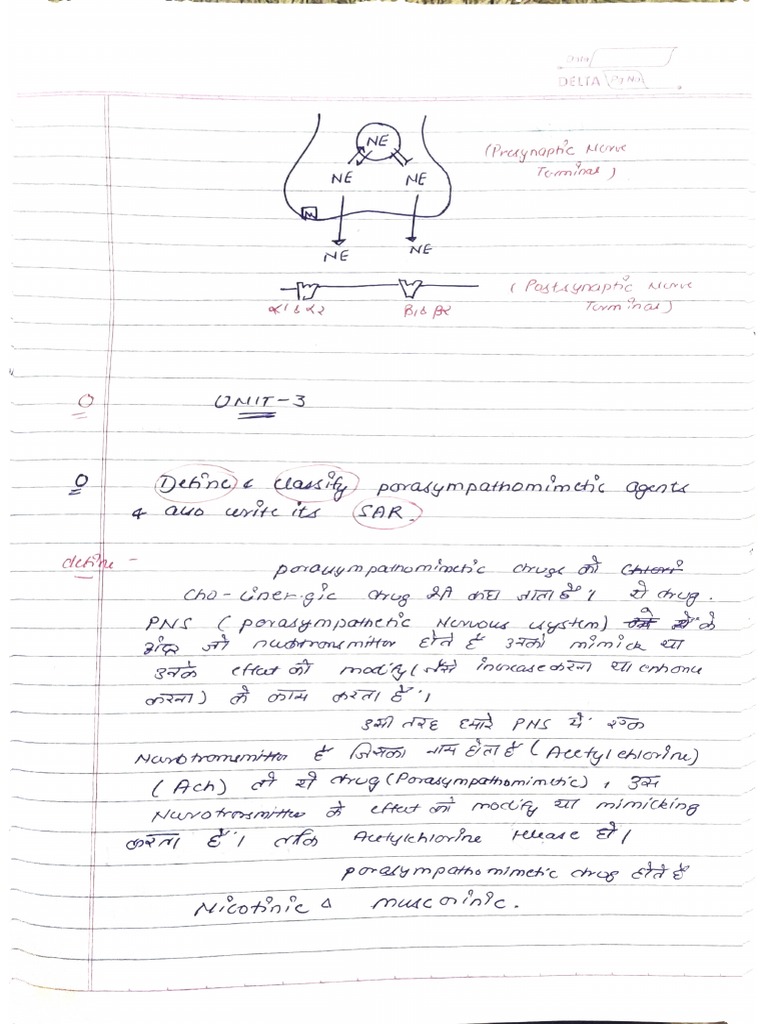 Date
DELTA Pg No.
NE
(Presynaptic Nerve
Terminal)
NE NE
M
NE NE
(Postsynaptic Nerve
Terminal)
α1 & α2 β1 & β2
UNIT-3
Q Define & classify parasympathomimetic agents
& also write its SAR.
define - parasympathomimetic drugs को
Cho-liner-gic drug भी कहा जाता है। ये drug
PNS (parasympathetic Nervous system) के
अंदर जो neurotransmitter होते हैं उनको mimick या
उनके effect को modify (जैसे increase करना या enhance
करना) के काम करता है।
इसी तरह हमारे PNS में एक
Neurotransmitter है जिसका नाम होता है (Acetylchlorine)
(Ach) तो ये drug (Parasympathomimetic), उस
Neurotransmitter के effect को modify या mimicking
करता है। ताकि Acetylchlorine release हो।
parasympathomimetic drug होते हैं
Nicotinic & muscarinic.